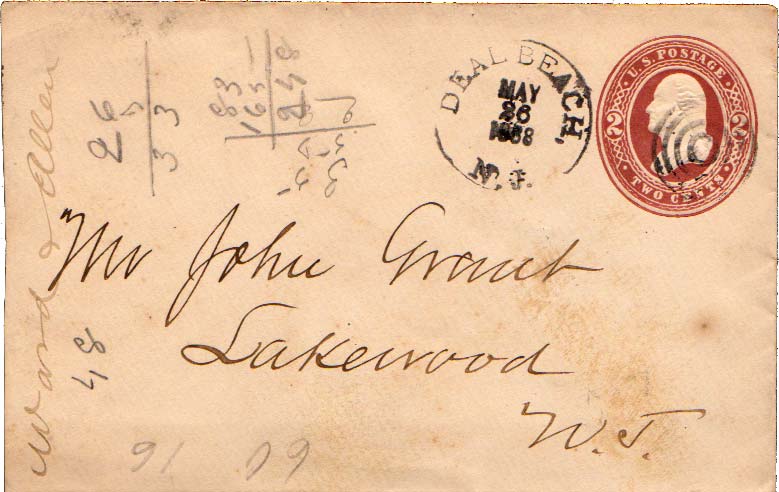 DEAL BEACH,
MAY
28
1888
N. J.
U.S. POSTAGE
2 2
TWO CENTS
Mr John Grant
Lakewood
N. J.
Ward & Allen
48
26
33
83
165
248
16 60